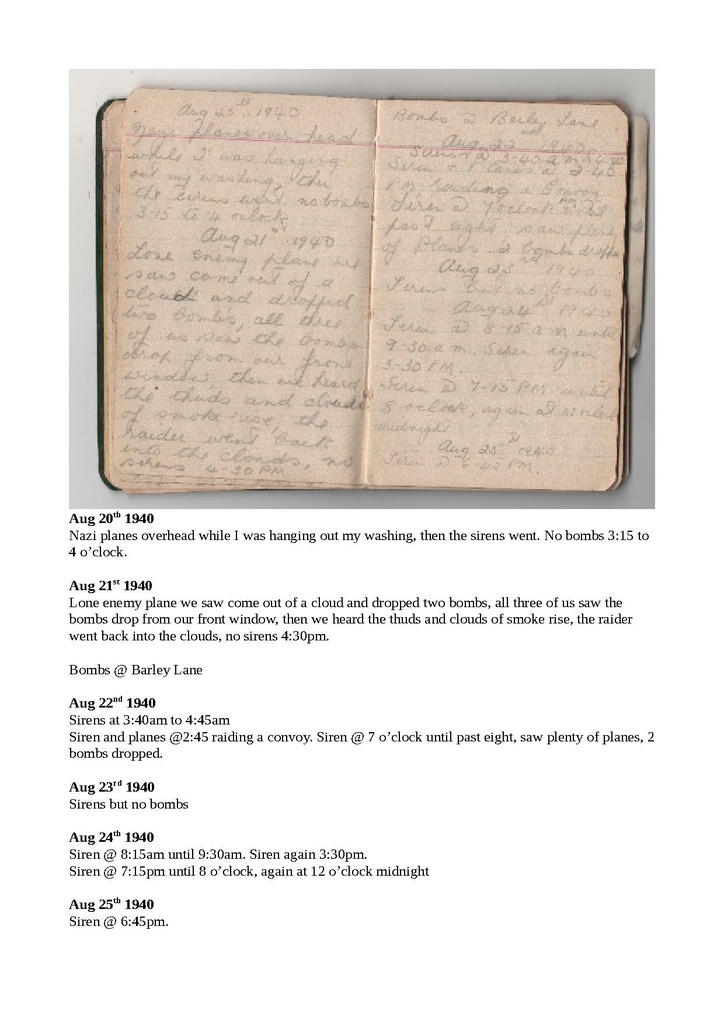 Aug 20th 1940
Nazi planes over head
while I was hanging
out my washing, then
the sirens went no bombs
3-15 to 4 oclock
Aug 21st 1940
Lone enemy plane we
saw come out of a
cloud and dropped
two bombs, all three
of us saw the bombs
drop from our front
window, then we heard
the thuds and clouds
of smoke rise, the
raider went back
into the clouds, no
sirens 4-30 PM
Bombs @ Barley Lane
Aug 22nd 1940
Sirens @ 3-40 a m
Siren & Planes @ 2-40
PM. raiding a Convoy
Siren @ 7 oclock PM until
past eight. saw plenty
of Planes. 2 bombs dropped
Aug 23rd 1940
Sirens but no bombs
Aug 24th 1940
Siren @ 8-15 a m until
9-30 a m. Siren again
3-30 PM.
Siren @ 7-15 PM until
8 oclock, again at 12 oclock
midnight
Aug 25 1940
Siren @ 6-45 PM.
Aug 20th 1940
Nazi planes overhead while I was hanging out my washing, then the sirens went. No bombs 3:15 to
4 o’clock.
Aug 21st 1940
Lone enemy plane we saw come out of a cloud and dropped two bombs, all three of us saw the
bombs drop from our front window, then we heard the thuds and clouds of smoke rise, the raider
went back into the clouds, no sirens 4:30pm.
Bombs @ Barley Lane
Aug 22nd 1940
Sirens at 3:40am to 4:45am
Siren and planes @2:45 raiding a convoy. Siren @ 7 o’clock until past eight, saw plenty of planes, 2
bombs dropped.
Aug 23rd 1940
Sirens but no bombs
Aug 24th 1940
Siren @ 8:15am until 9:30am. Siren again 3:30pm.
Siren @ 7:15pm until 8 o’clock, again at 12 o’clock midnight
Aug 25th 1940
Siren @ 6:45pm.